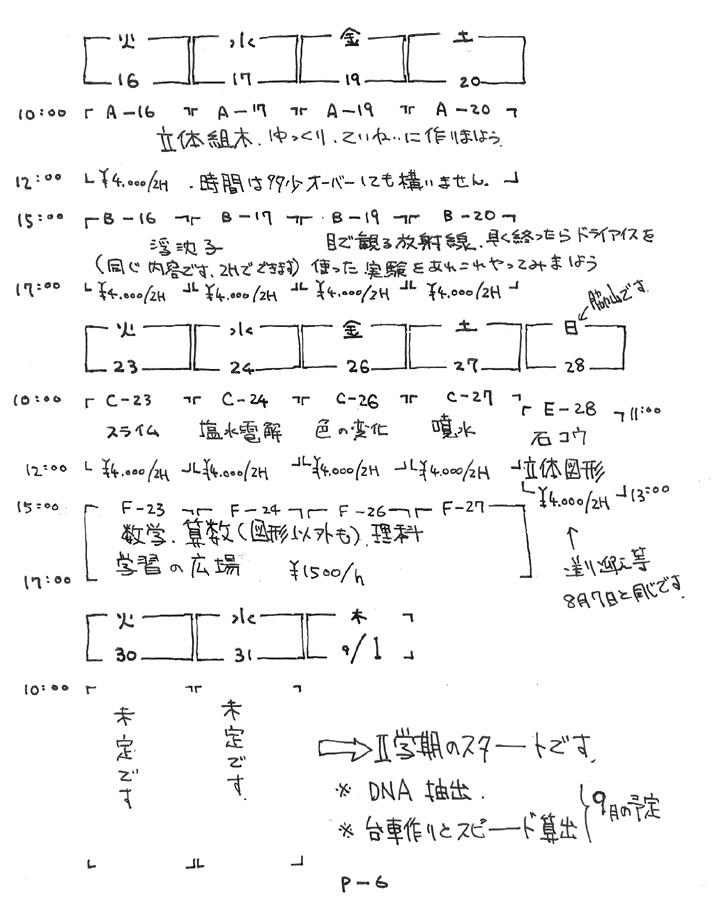 火 水 金 土
16 17 19 20
10:00 A-16 A-17 A-19 A-20
立体組木.ゆっくり.ていねいに作りましょう.
12:00 ¥4.000/2H .時間は多少オーバーしても構いません。
15:00 B-16 B-17 B-19 B-20
浮沈子 目で観る放射線.早く終ったらドライアイスを
(同じ内容です.2Hでできます) 使った実験をあれこれやってみましょう
17:00 ¥4.000/2H ¥4.000/2H ¥4.000/2H ¥4.000/2H
火 水 金 土 日
23 24 26 27 28
10:00 C-23 C-24 C-26 C-27 E-28 11:00
スライム 塩水電解 色の変化 噴水 石コウ
12:00 ¥4.000/2H ¥4.000/2H ¥4.000/2H ¥4.000/2H 立体図形
¥4.000/2H 13:00
15:00 F-23 F-24 F-26 F-27
数学.算数(図形以外も).理科
学習の広場 ¥1500/h
17:00
送り迎え等
8月7日と同じです.
火 水 木
30 31 9/1
10:00
未定です 未定です.
⇒Ⅱ学期のスタートです.
※ DNA 抽出.
※ 台車作りとスピード算出
9月の予定
P-6